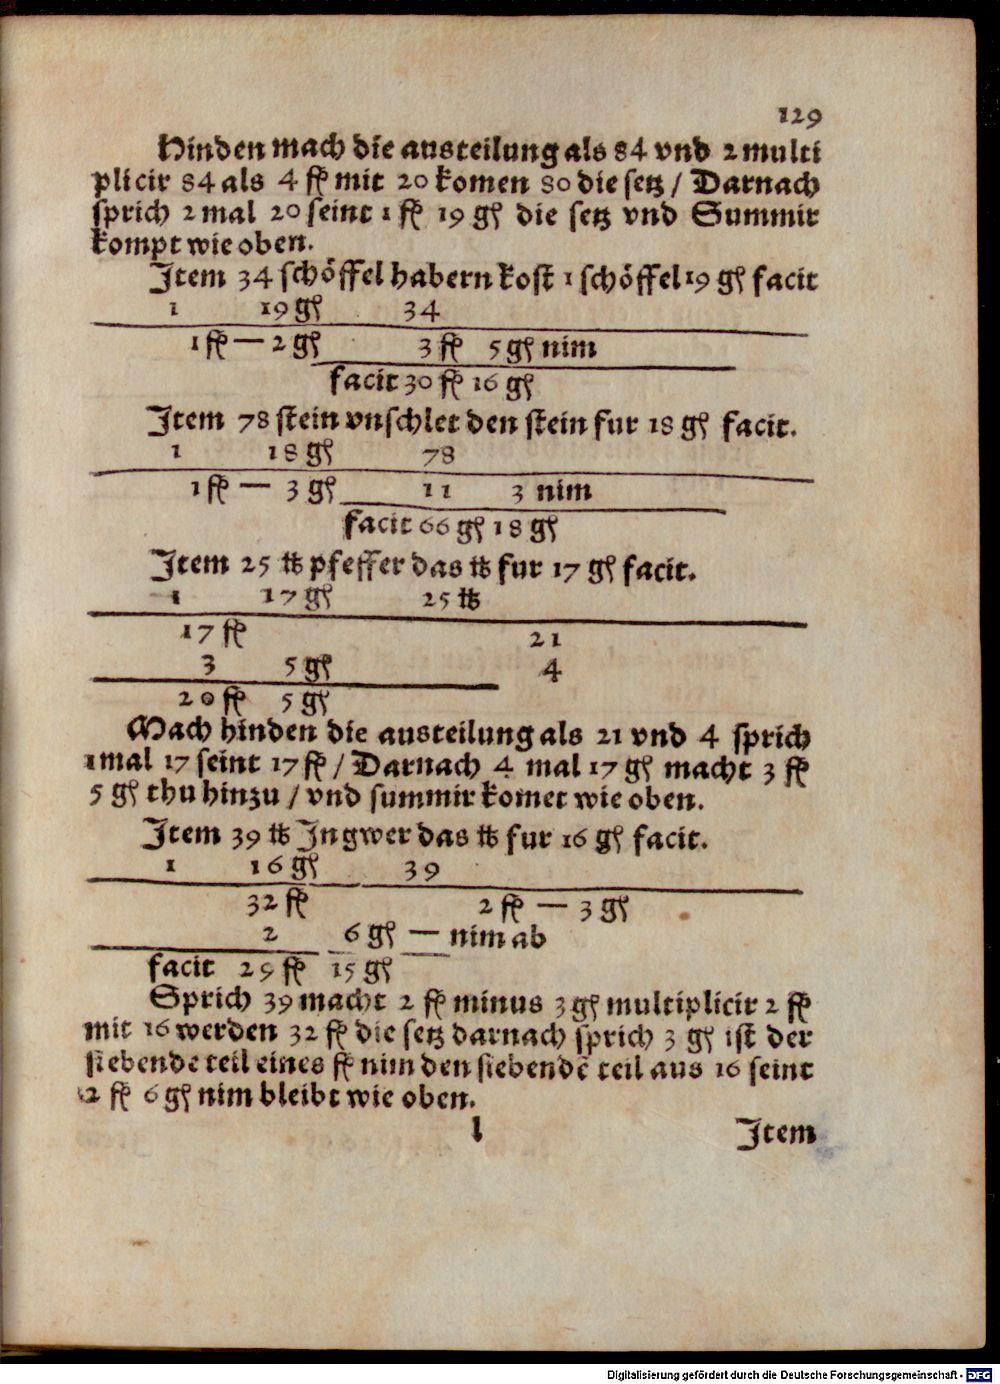 129
Hinden mach die austeilung als 84 vnd 2 multi
plicir 84 als 4 fl mit 20 komen 80 die setz / Darnach
sprich 2 mal 20 seint 1 fl 19 gl die setz vnd Summir
kompt wie oben.
Item 34 schöffel habern kost 1 schöffel 19 gl facit
1 19 gl 34
1 fl — 2 gl 3 fl 5 gl nim
facit 30 fl 16 gl
Item 78 stein vnschlet den stein fur 18 gl facit.
1 18 gl 78
1 fl — 3 gl 11 3 nim
facit 66 gl 18 gl
Item 25 ℔ pfeffer das ℔ fur 17 gl facit.
1 17 gl 25 ℔
17 fl 21
3 5 gl 4
20 fl 5 gl
Mach hinden die austeilung als 21 vnd 4 sprich
1 mal 17 seint 17 fl / Darnach 4 mal 17 gl macht 3 fl
5 gl thu hinzu / vnd summir komet wie oben.
Item 39 ℔ Ingwer das ℔ fur 16 gl facit.
1 16 gl 39
32 fl 2 fl — 3 gl
2 6 gl — nim ab
facit 29 fl 15 gl
Sprich 39 macht 2 fl minus 3 gl multiplicir 2 fl
mit 16 werden 32 fl die setz darnach sprich 3 gl ist der
siebende teil eines fl nim den siebendē teil aus 16 seint
2 fl 6 gl nim bleibt wie oben.
l Item
Digitalisierung gefördert durch die Deutsche Forschungsgemeinschaft - DFG